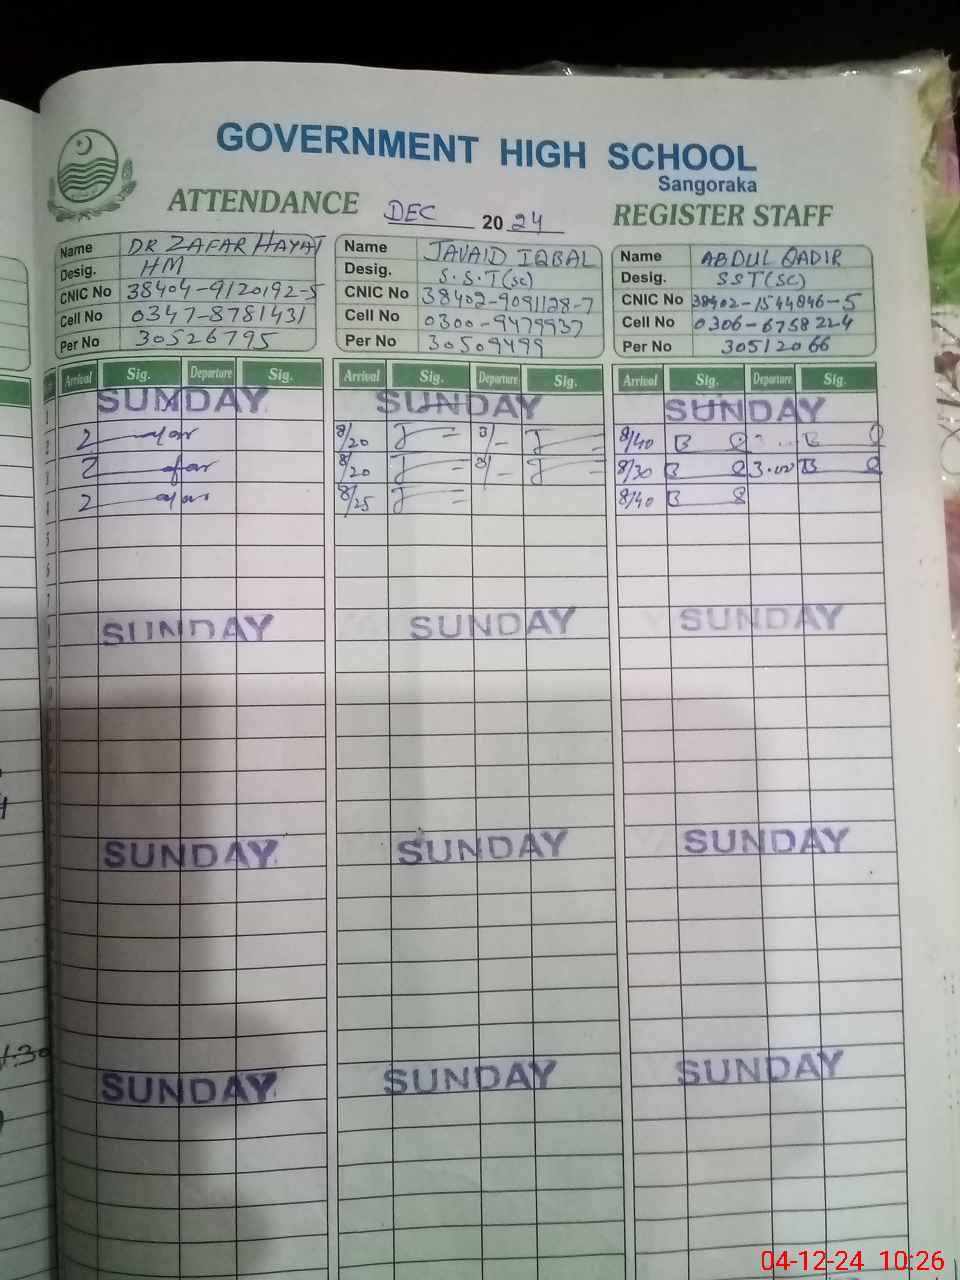 GOVERNMENT HIGH SCHOOL
Sangoraka
ATTENDANCE DEC 2024 REGISTER STAFF
Name DR ZAFAR HAYAT Name JAVAID IQBAL Name ABDUL QADIR
Desig. HM Desig. S.S.T(SC) Desig. SST(SC)
CNIC No 38404-9120192-5 CNIC No 38402-9091128-7 CNIC No 38402-1544846-5
Cell No 0347-8781431 Cell No 0300-9479937 Cell No 0306-6758224
Per No 30526795 Per No 30509499 Per No 30512066
Arrival Sig. Departure Sig. Arrival Sig. Departure Sig. Arrival Sig. Departure Sig.
1 SUNDAY SUNDAY SUNDAY
2 8/20 3/- 8/40
3 8/20 3/- 8/30 3.00
4 8/25 8/40
5
6
7
SUNDAY SUNDAY SUNDAY
SUNDAY SUNDAY SUNDAY
SUNDAY SUNDAY SUNDAY
04-12-24 10:26